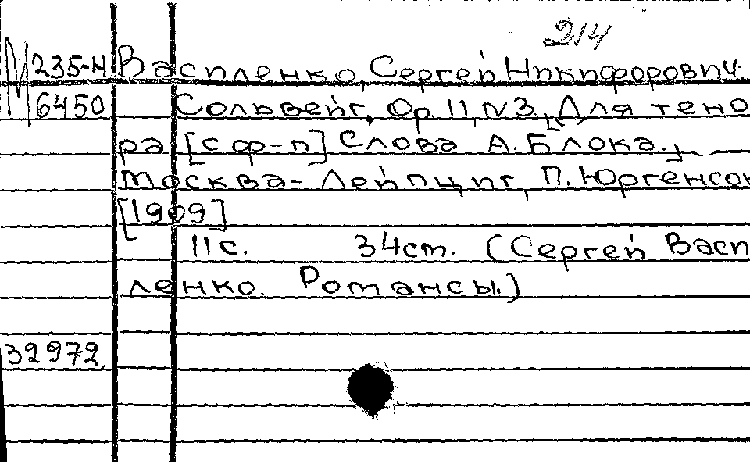 214
М 235-Н Василенко, Сергей Никифорович.
6450 Сольвейг, Ор. 11, N3, Для тено
ра [с ф-п] Слова А. Блока.,
Москва - Лейпциг, П. Юргенсон
[1909]
11с. 34см. (Сергей Васи
ленко. Романсы.)
32972